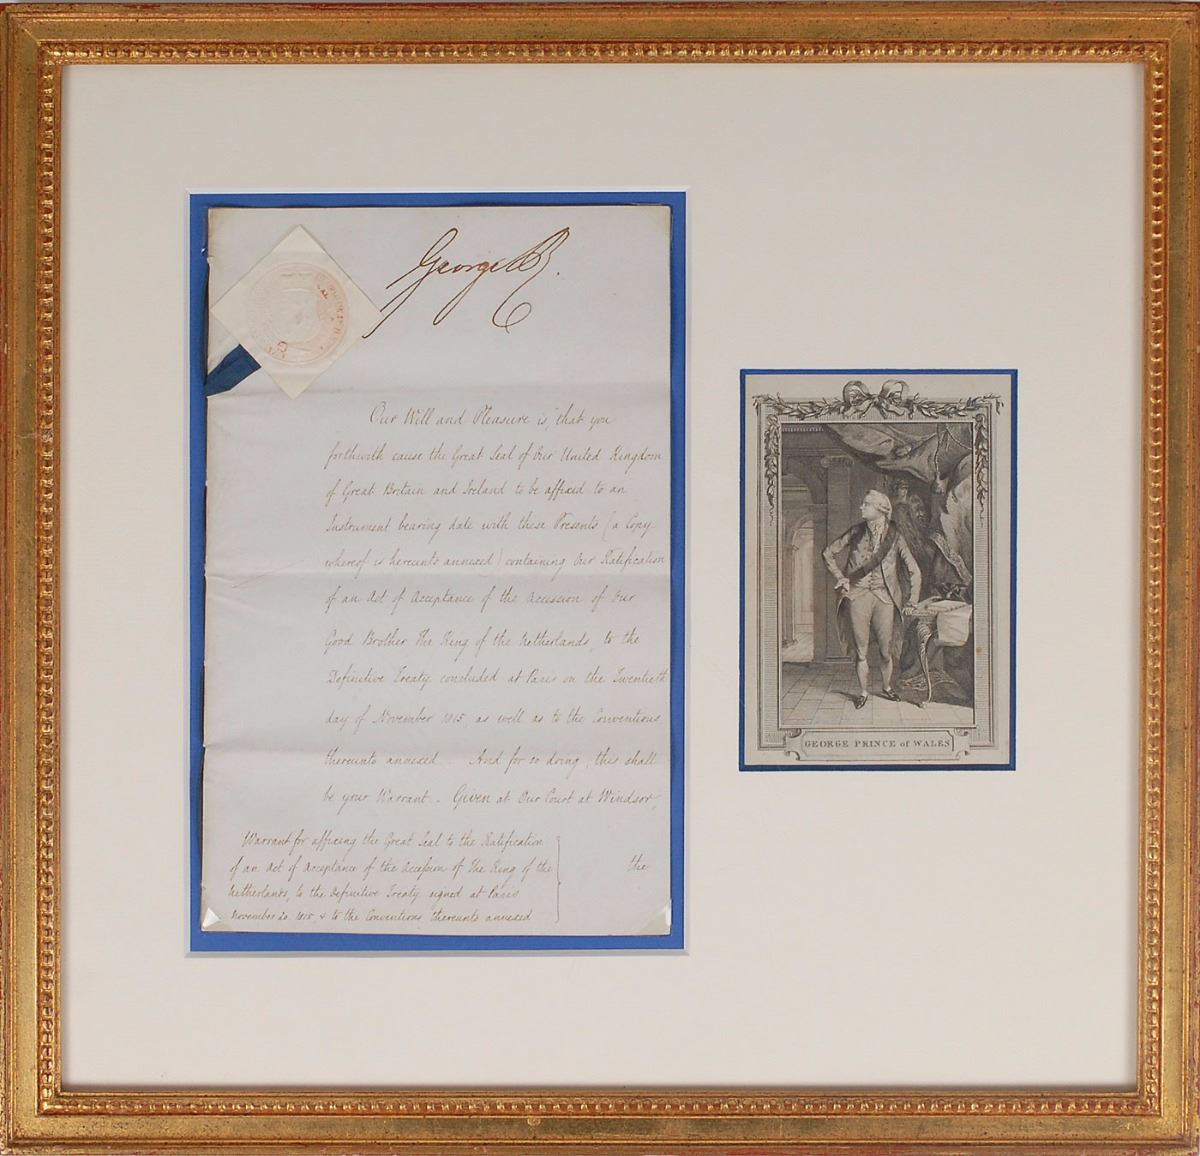 George R.
Our Will and Pleasure is, that you
forthwith cause the Great Seal of Our United Kingdom
of Great Britain and Ireland to be affixed to an
Instrument bearing date with these Presents (a Copy
whereof is hereunto annexed) containing Our Ratification
of an Act of Acceptance of the Accession of Our
Good Brother The King of the Netherlands, to the
Definitive Treaty concluded at Paris on the Twentieth
day of November 1815 as well as to the Conventions
thereunto annexed. And for so doing, this shall
be your Warrant. Given at Our Court at Windsor,
the
Warrant for affixing the Great Seal to the Ratification
of an Act of Acceptance of the Accession of The King of the
Netherlands, to the Definitive Treaty signed at Paris
November 20. 1815 & to the Conventions thereunto annexed
GEORGE PRINCE of WALES